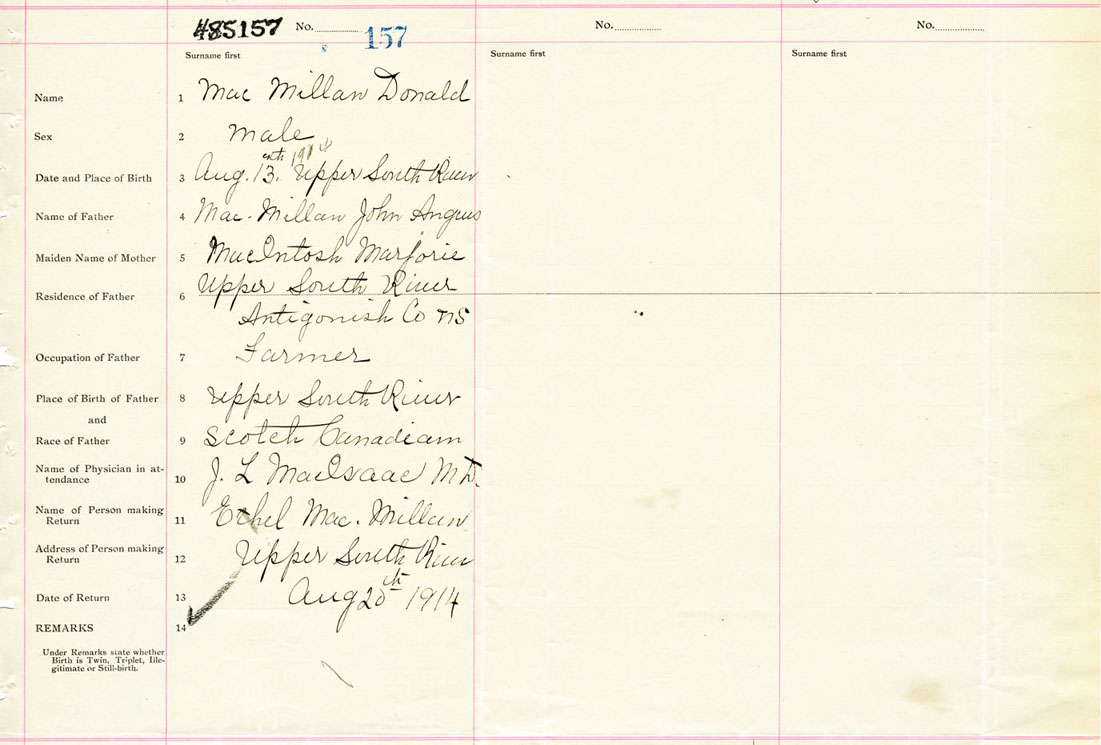 485157 No. 157 No. No.
Surname first Surname first Surname first
Name 1 Mac Millan Donald
Sex 2 Male
Date and Place of Birth 3 Aug. 13th 1914 Upper South River
Name of Father 4 Mac. Millan John Angus
Maiden Name of Mother 5 MacIntosh Marjorie
Residence of Father 6 Upper South River
Antigonish Co NS
Occupation of Father 7 Farmer
Place of Birth of Father 8 Upper South River
and
Race of Father 9 Scotch Canadian
Name of Physician in at-
tendance 10 J. L MacIsaac M D.
Name of Person making
Return 11 Ethel Mac. Millan
Address of Person making
Return 12 Upper South River
Date of Return 13 Aug 20th 1914
REMARKS 14
Under Remarks state whether
Birth is Twin, Triplet, Ille-
gitimate or Still-birth.